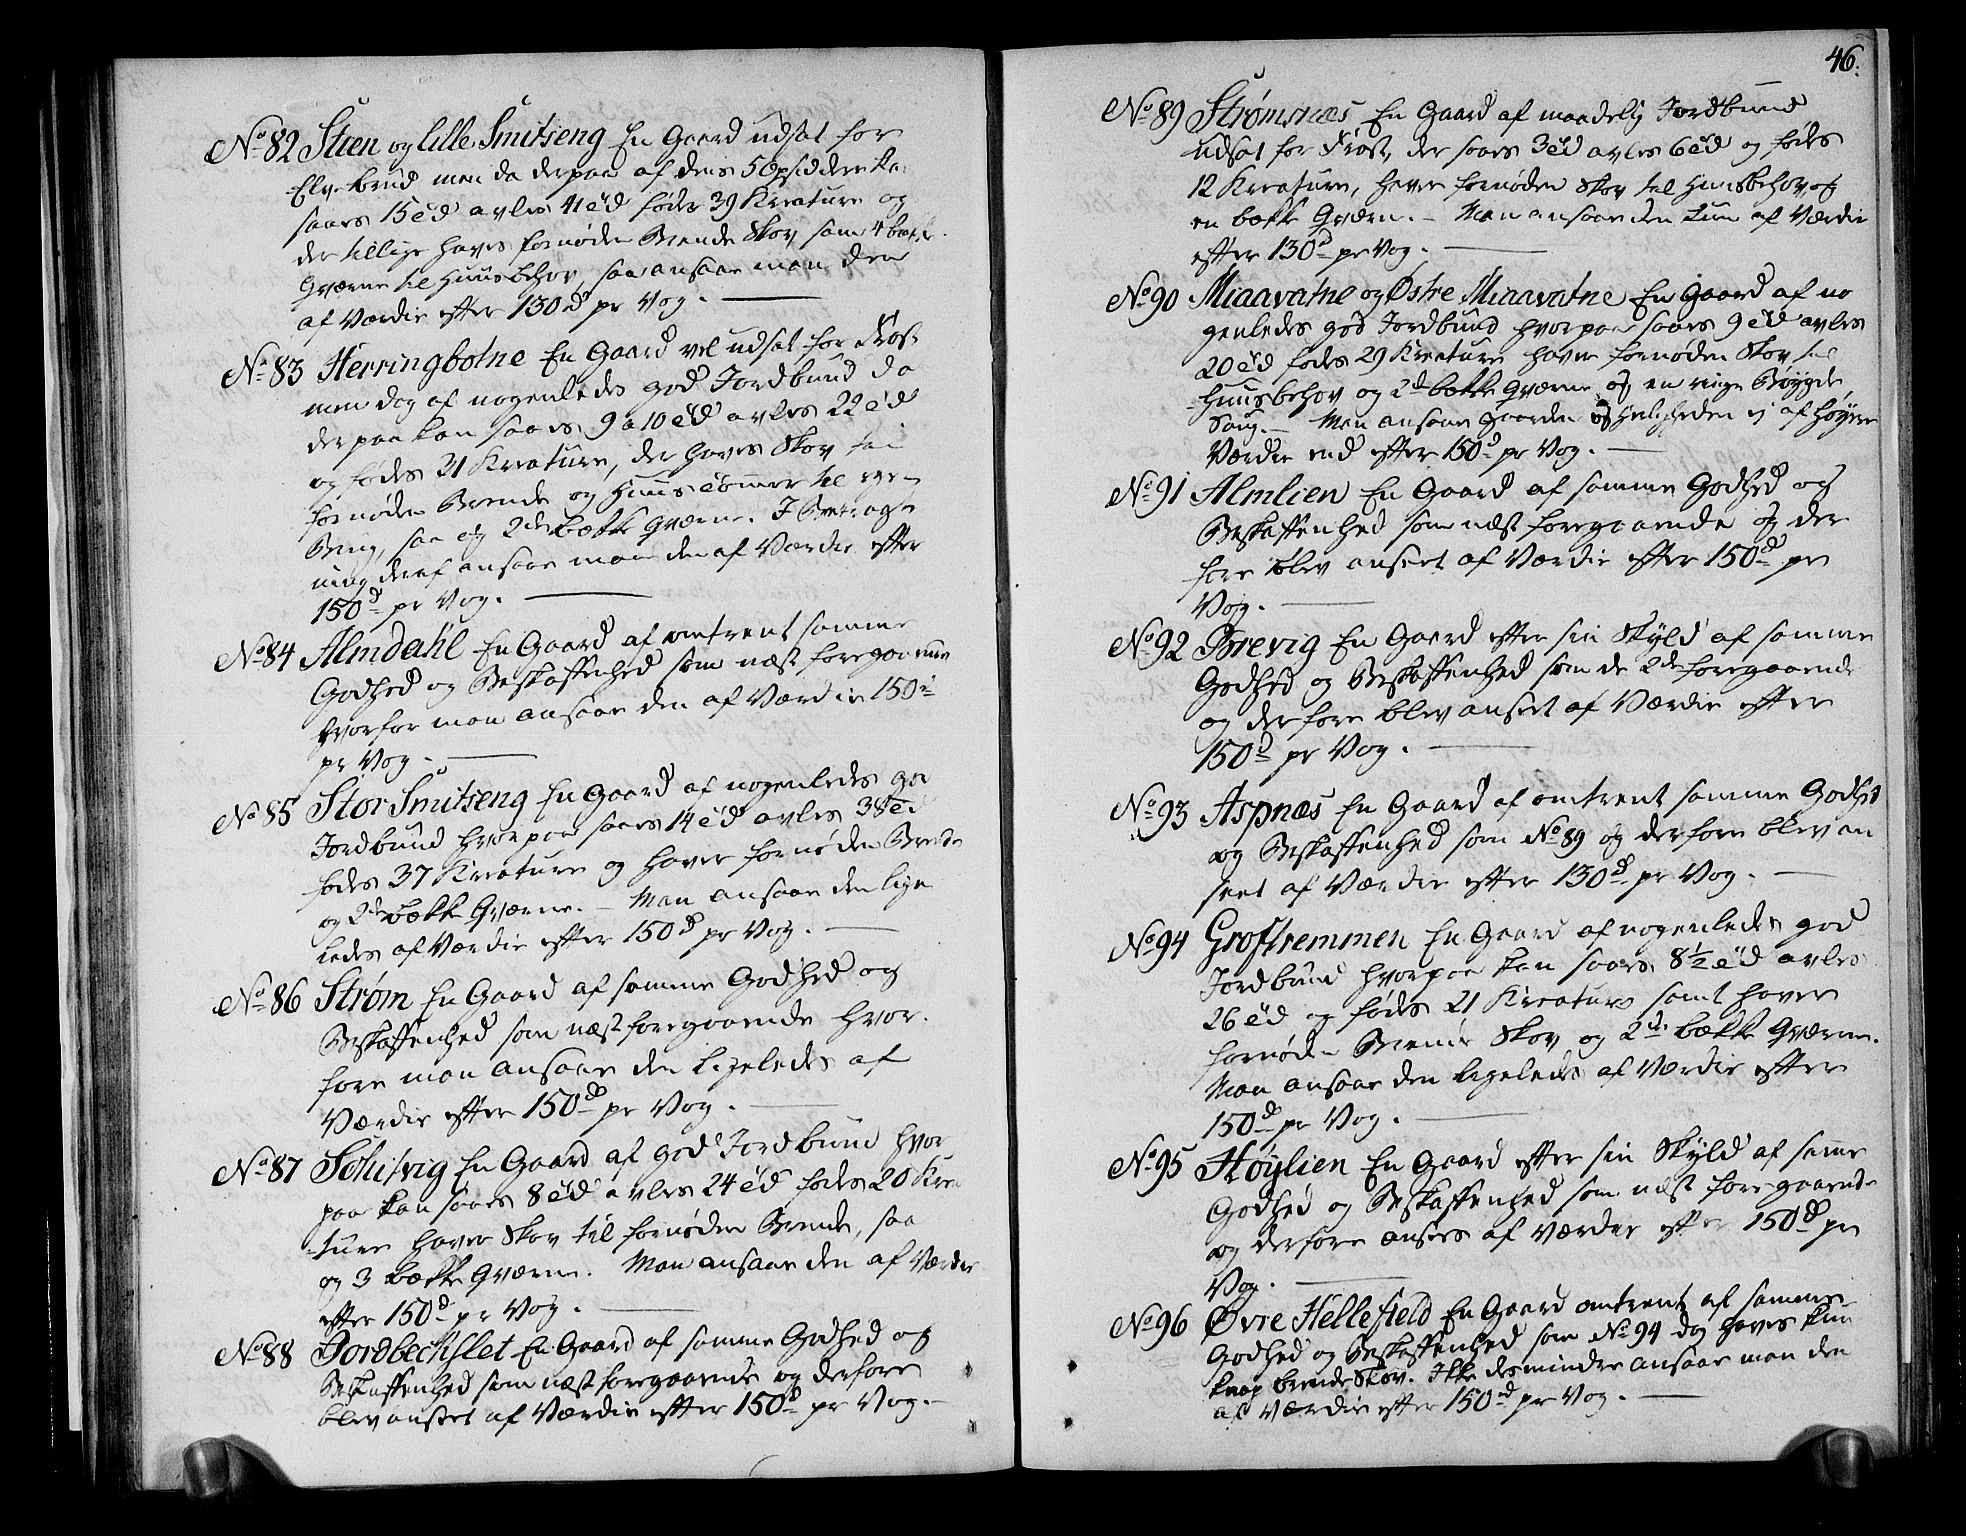 No 82 Stien og lille Smitseng En Gaard udsat for
Elvebrud men da derpaa af dens
saaes 15 Tdr avles 41 Tdr fødes 39 Kreature og
der tillige haves fornøden Brende Skov, som 4 bække
Qværne til Huusbehov, saa ansaae man den
af Værdie efter 130 d pr Vog. —
No 83 Herringbotne En Gaard vel udsat for Frost
men dog af nogenledes god Jordbund da
derpaa kan saaes 9 a 10 Tdr avles 22 Tdr
og fødes 31 Kreature, der haves Skov til
fornøden Brende og Huustømmer til
saa og 2de bække Qværne. I Betragt-
ning deraf ansaae man den af Værdie efter
150 d pr Vog. —
No 84 Almdahl En Gaard af omtrent samme
Godhed og Beskaffenhed som næst foregaaende
hvorfor man ansaae den af Værdie 150 d
pr Vog. —
No 85 Stor Smitseng En Gaard af nogenledes god
Jordbund hvorpaa saaes 14 Tdr avles 38 Tdr
fødes 37 Kreature og haver fornøden Brende
og 2de bække Qværne. — Man ansaae den lige
ledes af Værdie efter 150 d pr Vog. —
No 86 Strøm En Gaard af samme Godhed og
Beskaffenhed som næst foregaaende hvor-
fore man ansaae den ligeledes af
Værdie efter 150 d pr Vog. —
No 87 Schitvig En Gaard af god Jordbund hvor
paa kan saaes 8 Tdr avles 24 Tdr fødes 20 Krea
-ture haver Skov til fornøden Brende, saa
og 3 bække Qværne. Man ansaae den af Værdie
efter 150 d pr Vog. —
No 88 Jordbechslet En Gaard af samme Godhed og
Beskaffenhed som næst foregaaende og derfore
blev anseet af Værdie efter 150 d pr Vog. —
46.
No 89 Strømsnæs En Gaard af maadelig Jordbund
udsat for Frost, der saaes 3 Tdr avles 6 Tdr og fødes
12 Kreature, haver fornøden Skov til Huusbehov og
en bække Qværn. — Man ansaae den kun af Værdie
efter 130 d pr Vog. —
No 90 Miaavatne og Østre Miaavatne En Gaard af no
genledes god Jordbund hvorpaa saaes 9 Tdr avles
20 Tdr fødes 29 Kreature haver fornøden Skov til
Huusbehov og 2de bække Qværne og en ringe Bøygde
Saug. — Man ansaae Gaarden og Herligheden ej af høyere
Værdie end efter 150 d pr Vog. —
No 91 Almlien En Gaard af samme Godhed og
Beskaffenhed som næst foregaaende og der
fore blev anseet af Værdie efter 150 d pr
Vog. —
No 92 Brevig En Gaard efter sin Skyld af samme
Godhed og Beskaffenhed som de 2de foregaaende
og derfore blev anseet af Værdie efter
150 d pr Vog. —
No 93 Aspnæs En Gaard af omtrent samme Godhed
og Beskaffenhed som No 89 og derfore blev an
seet af Værdie efter 130 d pr Vog. —
No 94 Groftremmen En Gaard af nogenledes god
Jordbund hvorpaa kan saaes 8½ Tdr avles
26 Tdr og fødes 21 Kreature samt haver
fornøden Brende Skov og 2de bække Qværne.
Man ansaae den ligeledes af Værdie efter
150 d pr Vog. —
No 95 Høylien En Gaard efter sin Skyld af samme
Godhed og Beskaffenhed som næst foregaaende
og derfore ansees af Værdie efter 150 d pr
Vog. —
No 96 Øvre Hellefield En Gaard omtrent af samme
Godhed og Beskaffenhed som No 94 dog haves kun
knap brende Skov. Ikke desmindre ansaae man den
af Værdie efter 150 d pr Vog. —